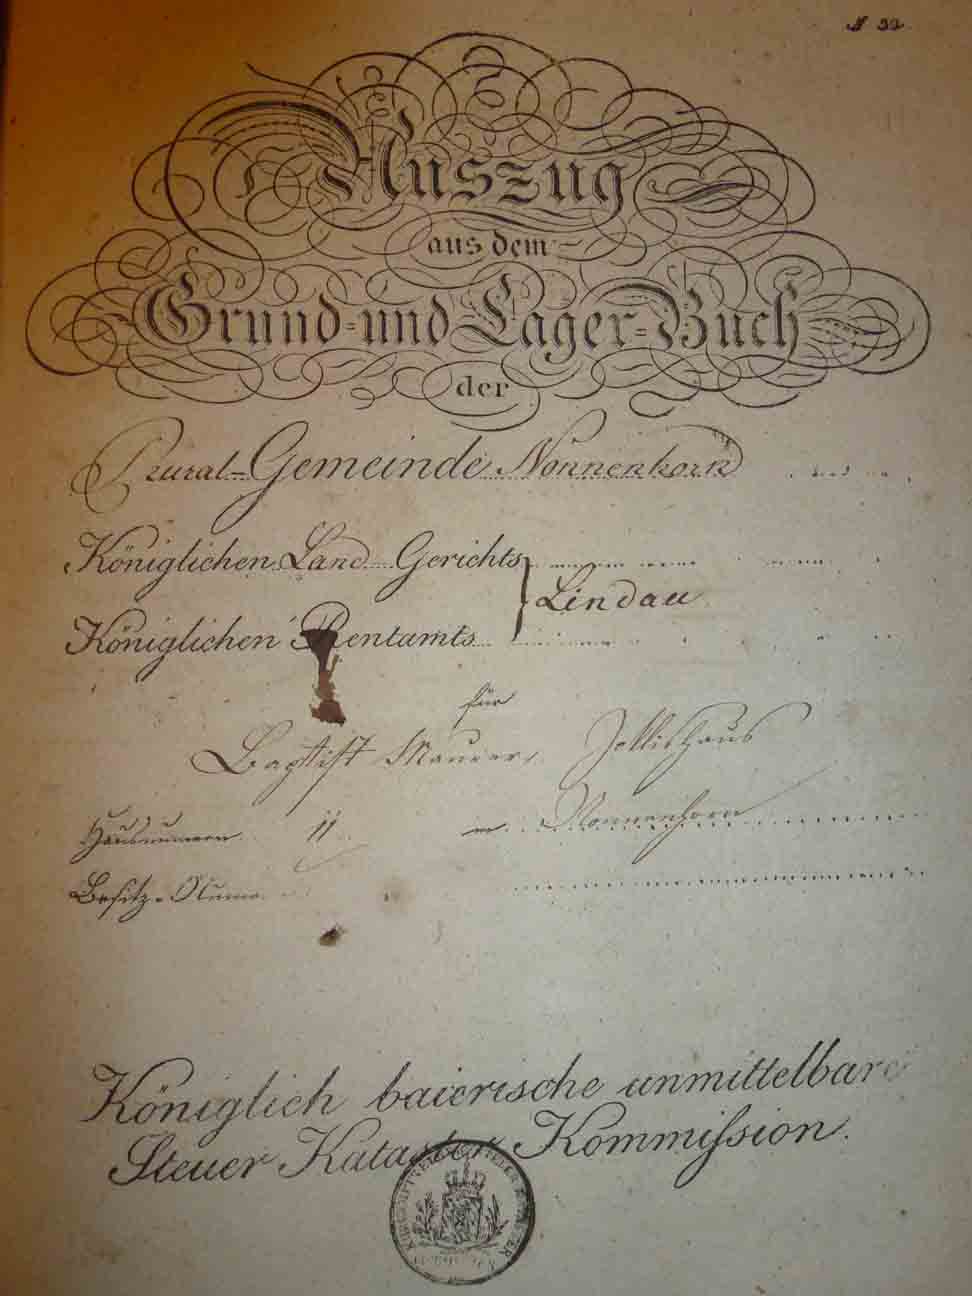 № 22
Auszug
aus dem
Grund- und Lager-Buch
der
Rural-Gemeinde Nonnenhorn
Königlichen Land Gerichts
Lindau
Königlichen Rentamts
für
Baptist Maurer, Zollishaus
Hausnumern 11 in Nonnenhorn
Besitz-Numer
Königlich baierische unmittelbare
Steuer Kataster Kommission.